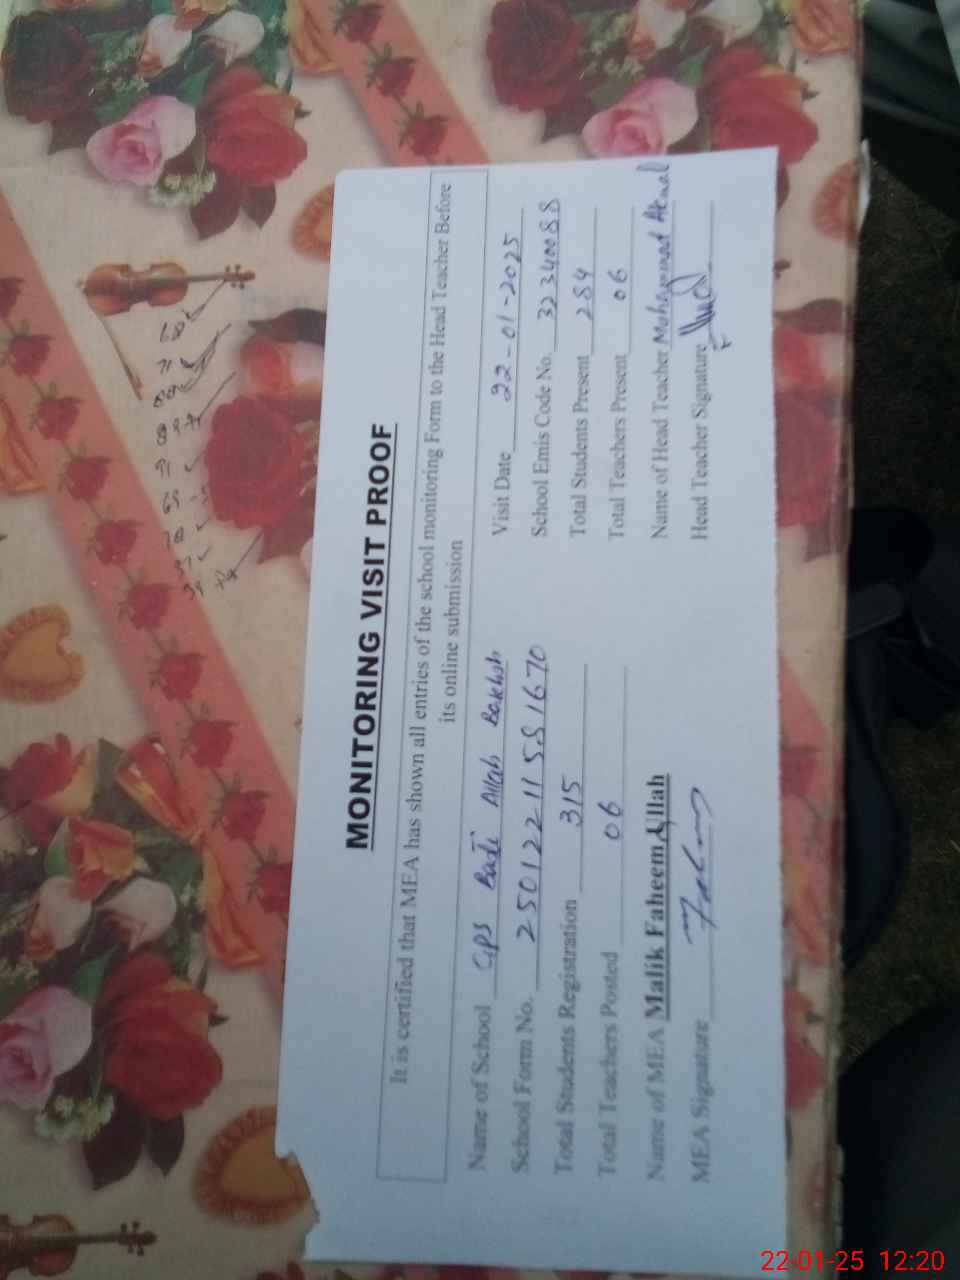 MONITORING VISIT PROOF
It is certified that MEA has shown all entries of the school monitoring Form to the Head Teacher Before
its online submission
Name of School GPS Badi Allah Bakhsh Visit Date 22-01-2025
School Form No. 250122115581670 School Emis Code No. 32340088
Total Students Registration 315 Total Students Present 284
Total Teachers Posted 06 Total Teachers Present 06
Name of MEA Malik Faheem Ullah Name of Head Teacher Muhammad Akmal
MEA Signature Head Teacher Signature
22-01-25 12:20